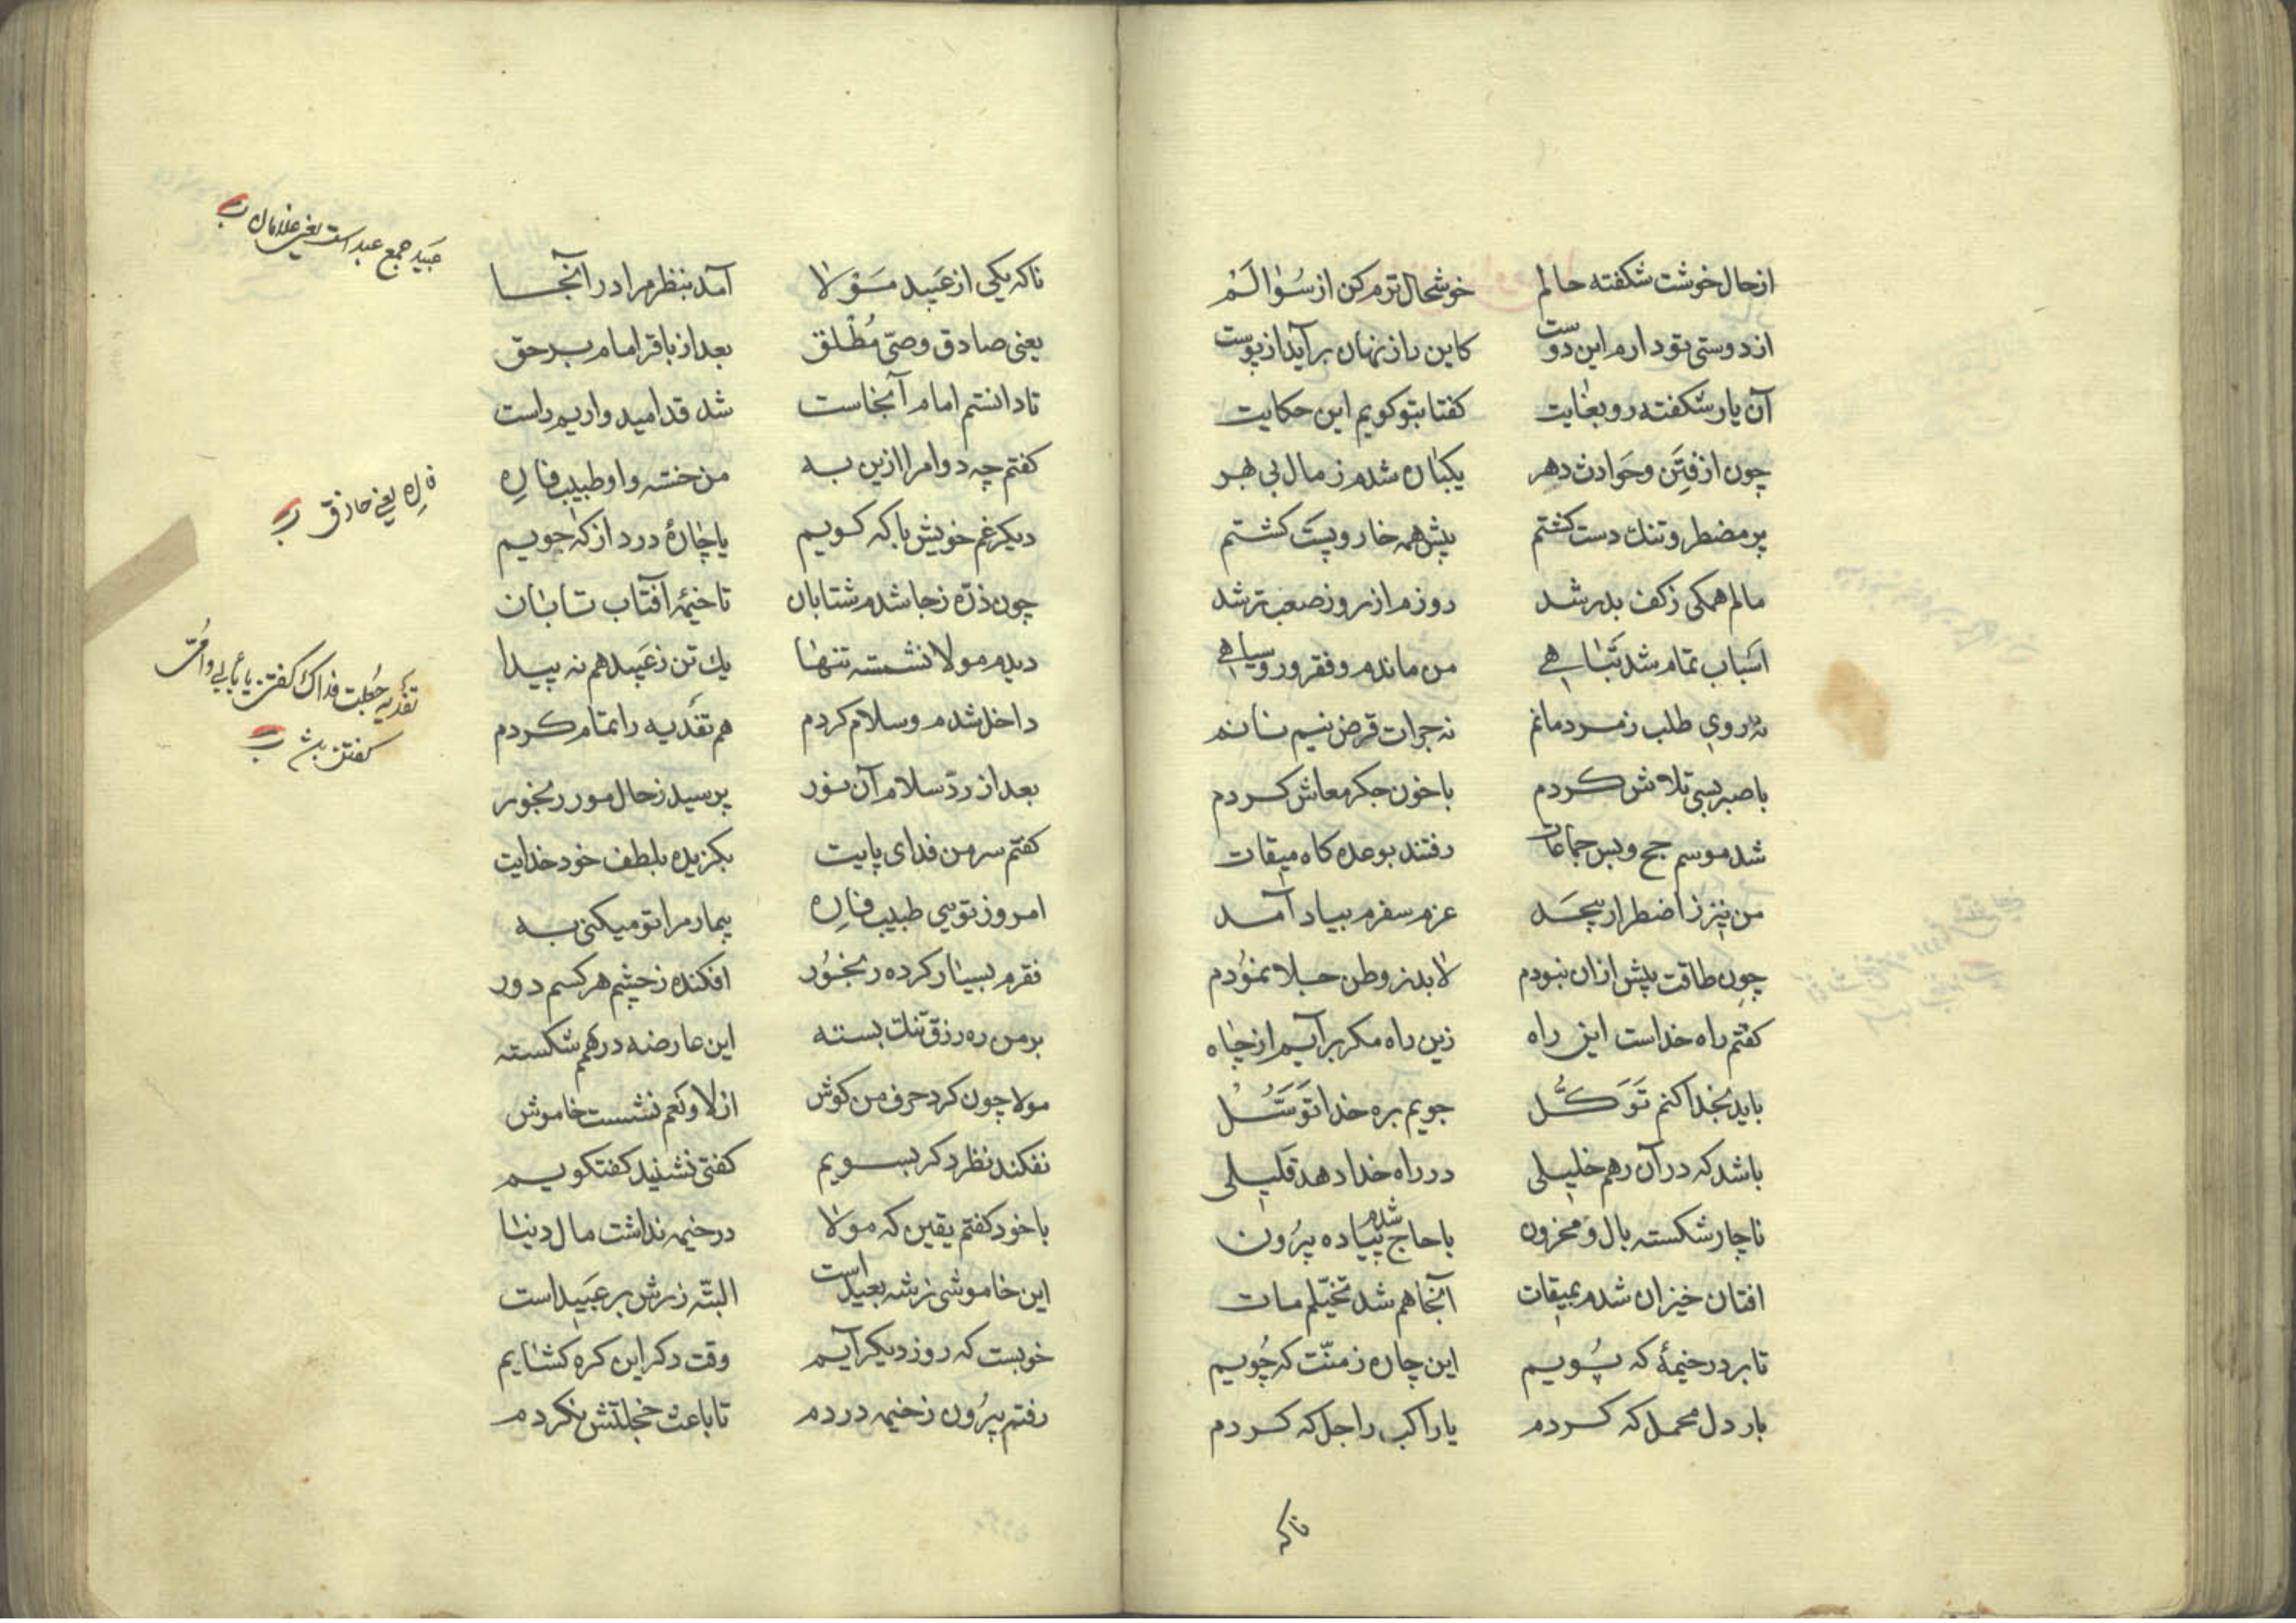 ازحال خوشت شکفته حالم خوشحال ترم کن از سؤالم
از دوستی تو دارم این دوست کاین راز نهان برآید از پوست
آن یار شکفته رو بغایت کفتا بتو کویم این حکایت
چون از فِتَن و حَوادث دهر یکباره شدم ز مال بی بهر
پر مضطر و تنك دست کشتم پیش همه خار و پَست کشتم
مالم همکی زکف بدر شد روزم از روز صعب تر شد
اسباب تمام شد تباهی من ماندم و فقر و روسیاهی
نه روی طلب ز مردمانم نه جرات قرض نیم نانم
با صبر بسی تلاش کردم با خون جکر معاش کردم
شد موسم حج و بس جماعات رفتند بوعده کاه میقات
من نیز ز اضطرار بیحد عزم سفرم بیاد آمد
چون طاقت پیش ازان نبودم لابد ز وطن جلا نمودم
کفتم راه خداست این راه زین راه مکر برآیم از چاه
باید بخدا کنم تَوَکُّل جویم بره خدا تَوَسُّل
باشد که در آن رهم خلیلی در راه خدا دهد قلیلی
ناچار شکسته بال و محزون با حاج پیاده شدم بیرون
افتان خیزان شدم بمیقات آنجا هم شد تخیّلم مات
تا بر در خیمهٔ که پُویم این چاره ز منّت که جُویم
بار دل محمل که کردم یا راکب راجل که کردم
ناکه
ناکه یکی از عَبید مَوْلا آمد بنظر مرا در آنجا
یعنی صادق وصیّ مُطْلق بعد از باقر امام برحق
تا دانستم امام آنجاست شد قد امید واریم راست
کفتم چه دوا مرا ازین به من خسته و او طبیب فارِه
دیکر غم خویش با که کویم یا چارهٔ درد از که جویم
چون ذرّه زجا شدم شتابان تا خیمهٔ آفتاب تابان
دیدم مولا نشسته تنها یك تن زعَبید هم نه پیدا
داخل شدم و سلام کردم هم تفَدیه را تمام کردم
بعد از ردّ سلام آن نور پرسید زحال مور رنجور
کفتم سر من فدای پایت بکزیده بلطف خود خدایت
امروز تویی طبیب فارِه بیمار مرا تو میکنی به
فقرم بسیار کرده رنجُور افکنده زچشم هر کسم دور
بر من ره رزق تنك بسته این عارضه در همم شکسته
مولا چون کرد حرف من کوش از لا و نعم نشست خاموش
نفکند نظر دکر بسویم کفتی نشنید کفتکویم
با خود کفتم یقین که مولا در خیمه نداشت مال دنیا
این خاموشی زشه بعید است البتّه زرش بر عَبید است
خوبست که روز دیکر آیم وقت دکر این کره کشایم
رفتم بیرُون زخیمه در دم تا باعث خجلتش نکردم
عَبَید جمع عبد است یعنی غلامان
فارِه یعنی حاذق
تفَدیه جُعِلت فداك کفتن یا بأبی و امّی
کفتن بش